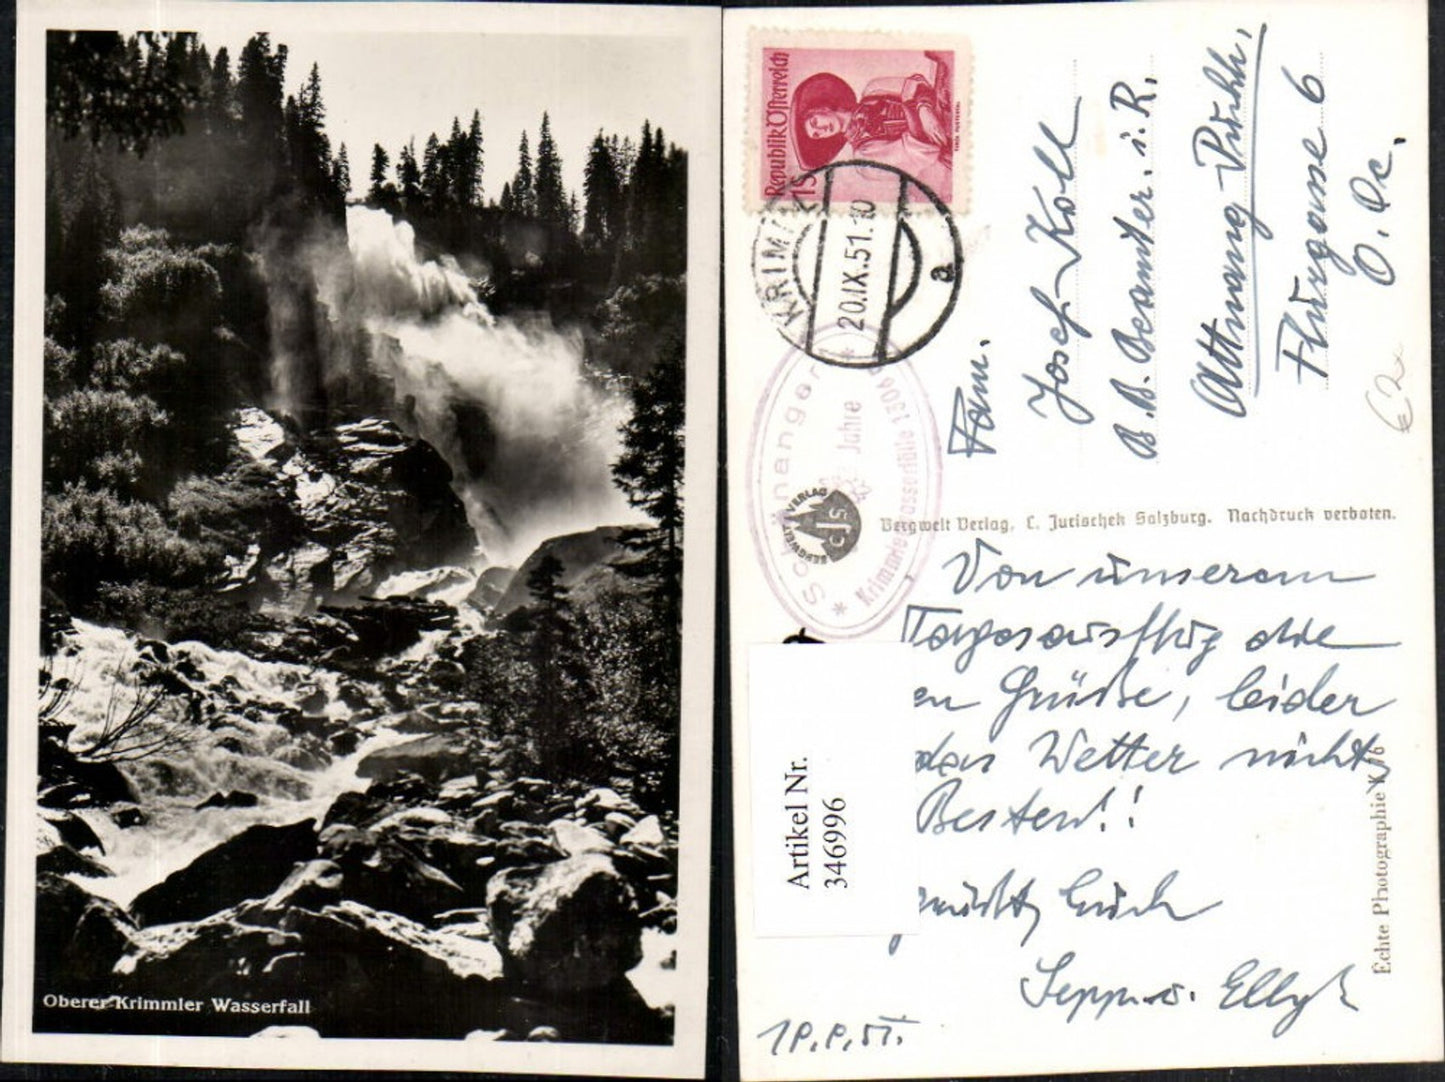 Oberer Krimmler Wasserfall
Republik Österreich
1S
KRIMML
20.IX.51.10
a
Schönangerl
Jahre
Krimmler Wasserfälle 1906
BERGWELT VERLAG
CJS
Fam.
Josef Koll
B.B. Beamter. i. R.
Attnang Puchh.
Flurgasse 6
O.Ö.
€ 2
Bergwelt Verlag, C. Jurischek Salzburg. Nachdruck verboten.
Von unserem
Tagesausflug die
en Grüße, leider
das Wetter nicht
Besten!!
Euch
Sepp u. Elly
Artikel Nr.
346996
Echte Photographie K 16